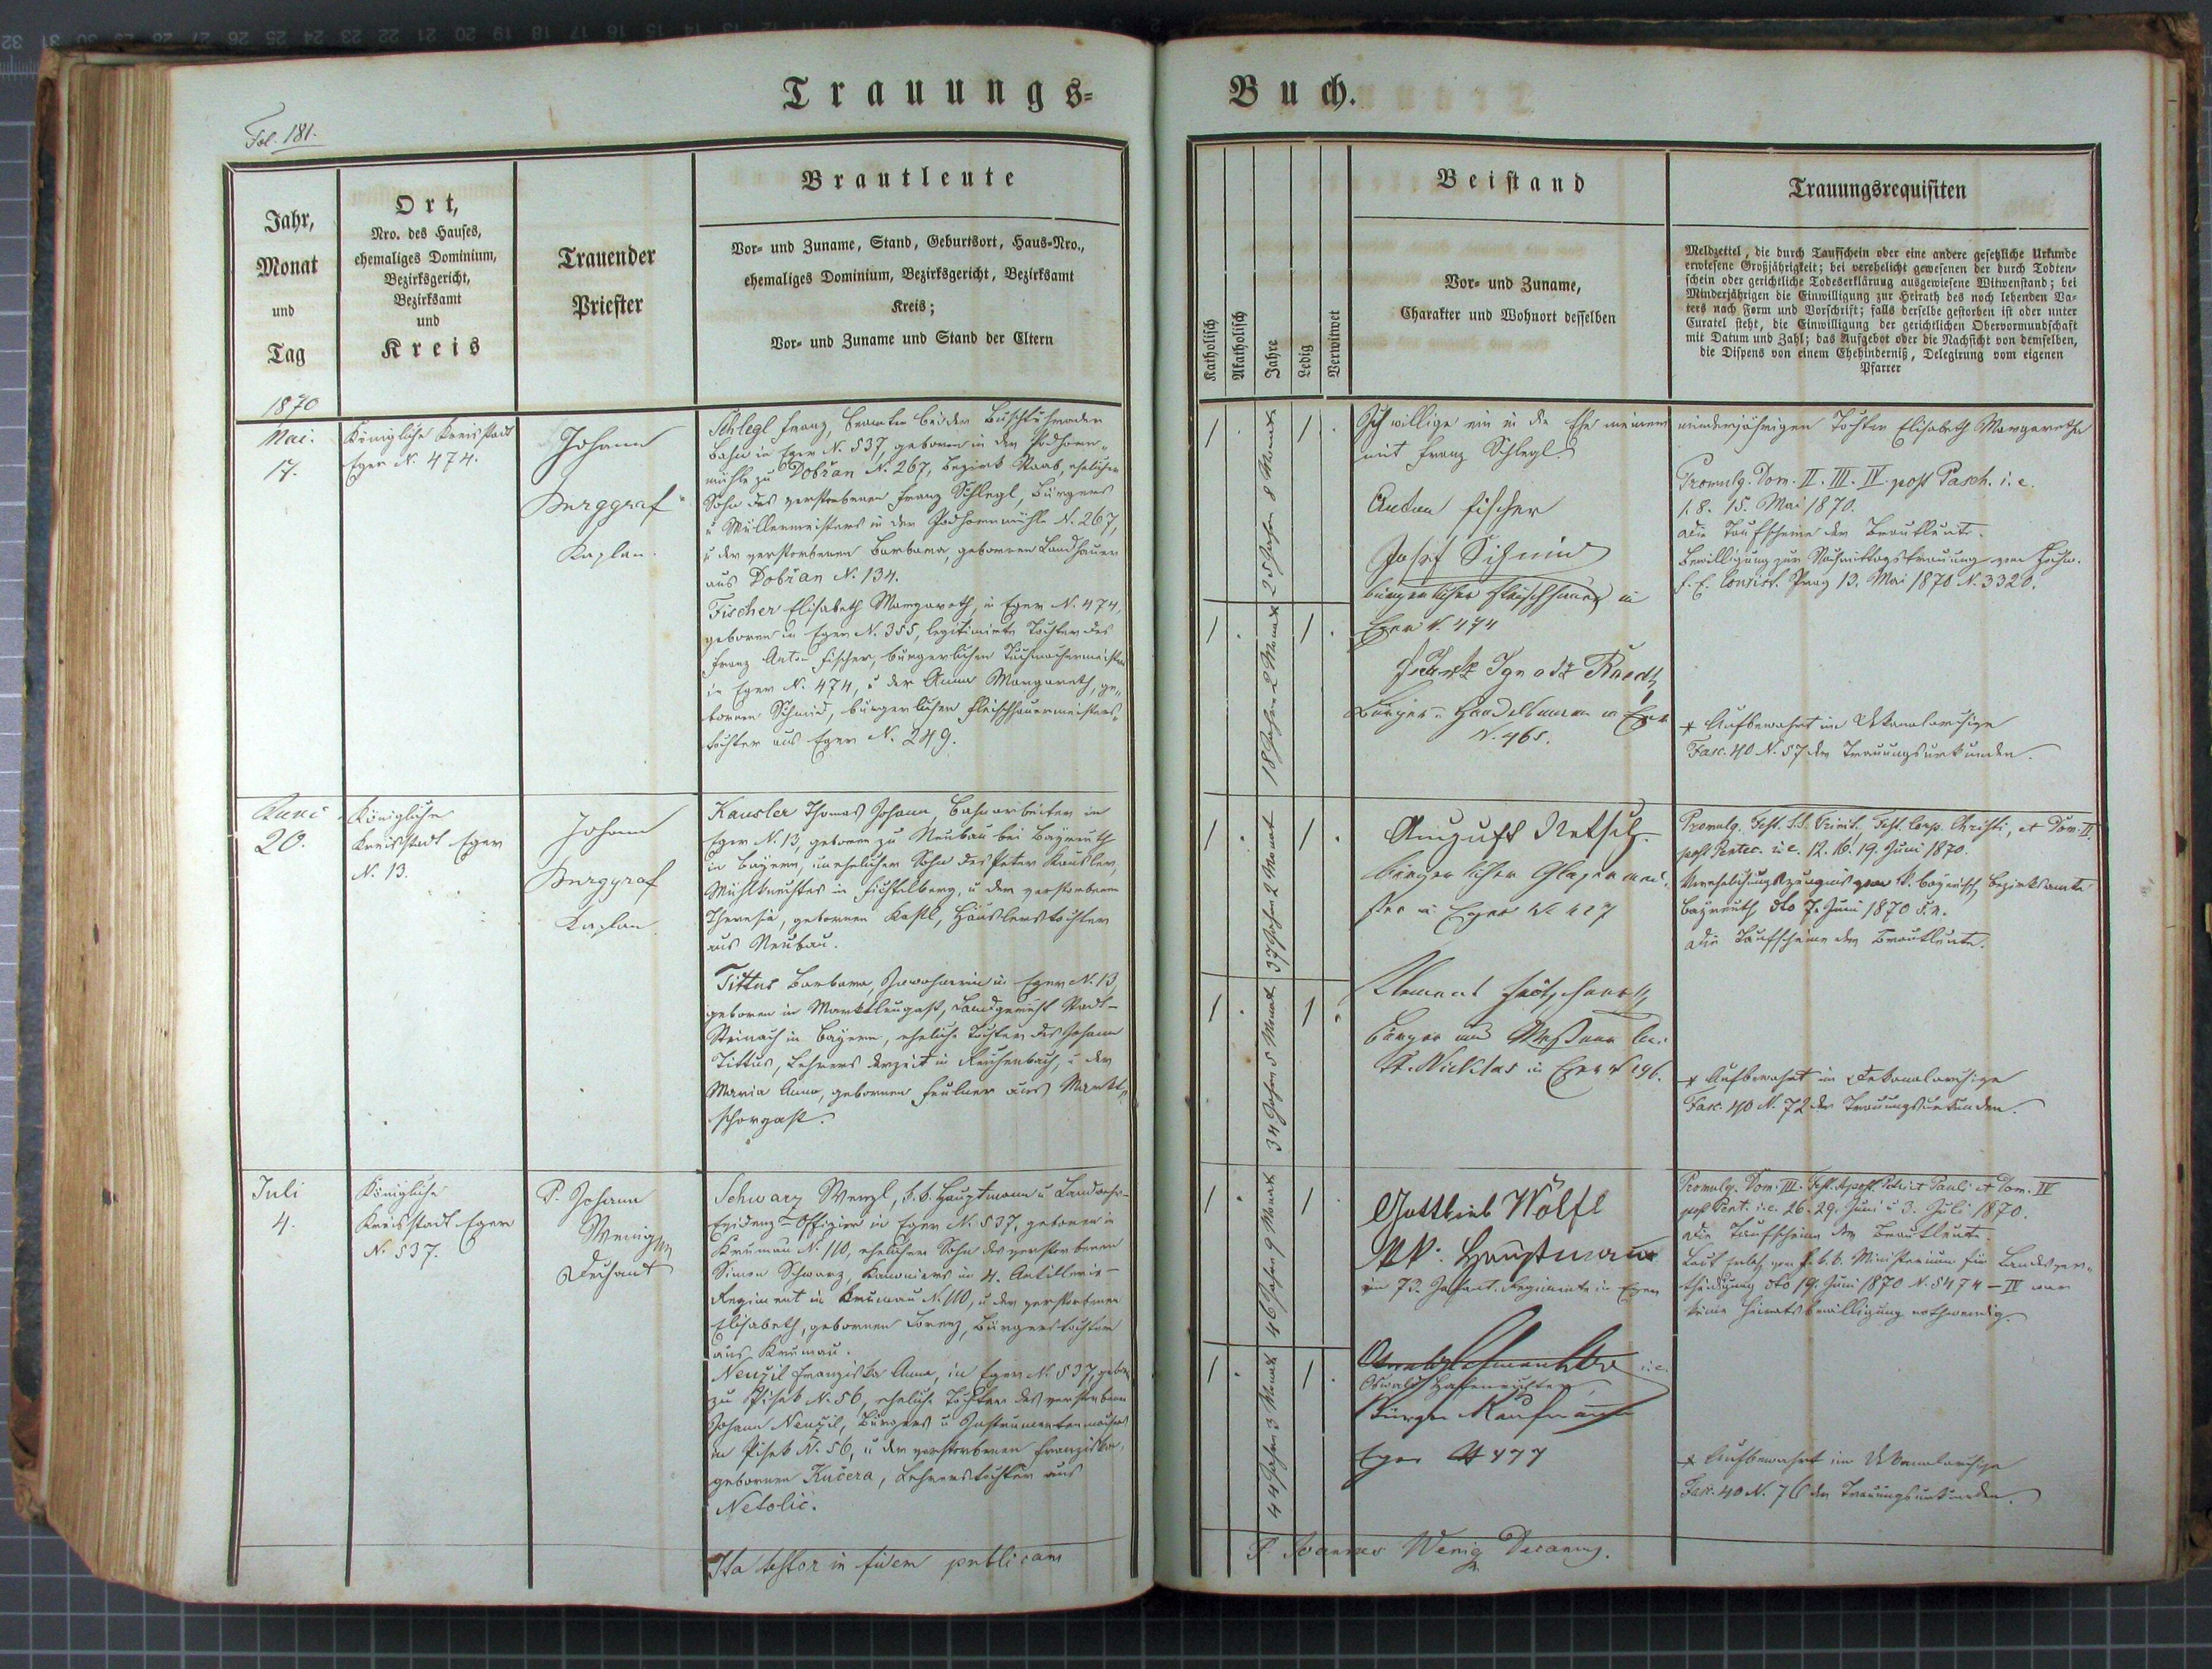 Trauungs-
Fol. 181.
Jahr,
Monat
und
Tag
1870
Ort,
Nro. des Hauses,
ehemaliges Dominium,
Bezirksgericht,
Bezirksamt
und
Kreis
Trauender
Priester
Brautleute
Vor- und Zuname, Stand, Geburtsort, Haus-Nro.,
ehemaliges Dominium, Bezirksgericht, Bezirksamt
Kreis;
Vor- und Zuname und Stand der Eltern
Mai.
17.
Königliche Kreisstadt
Eger N. 474.
Johann
Burggraf
Kaplan.
Schlegl Franz, Beamter bei der Buschtěhrader
Bahn in Eger N. 537, geboren in der Podhorn-
mühle zu Dobřan N. 267, Bezirk Staab, ehelicher
Sohn des verstorbenen Franz Schlegl, Bürgers
u Müllermeisters in der Podhornmühle N. 267,
u der verstorbenen Barbara, gebornen Landhauer
aus Dobřan N. 134.
Fischer Elisabeth Margareth, in Eger N. 474,
geboren in Eger N. 355, legitimirte Tochter des
Franz Anton Fischer, bürgerlichen Tuchmachermeisters
in Eger N. 474, u der Anna Margareth, ge-
bornen Schmid, bürgerlichen Fleischhauermeisters-
tochter aus Eger N. 249.
Juni
20.
Königliche
Kreisstadt Eger
N. 13.
Johann
Burggraf
Kaplan.
Kausler Thomas Johann, Bahnarbeiter in
Eger N. 13, geboren zu Neubau bei Bayreuth
in Bayern, unehelicher Sohn des Peter Kausler,
Mühlknechtes in Fichtelberg, u der verstorbenen
Theresia, gebornen Kastl, Häuslerstochter
aus Neubau.
Tittus Barbara, in Eger N. 13,
geboren in Marktleugast, Landgericht Stadt-
Steinach in Bayern, eheliche Tochter des Johann
Tittus, Lehrers derzeit in Reichenbach, u der
Maria Anna, gebornen Feulner aus Markt-
schorgast.
Juli
4.
Königliche
Kreisstadt Eger
N. 537.
P. Johann
Wenig
Dechant
Schwarz Wenzl, k. k. Hauptmann u Landwehr-
Evidenz-Offizier in Eger N. 537, geboren in
Krumau N. 110, ehelicher Sohn des verstorbenen
Simon Schwarz, Kanoniers im 4. Artillerie-
Regiment in Krumau N. 110, u der verstorbenen
Elisabeth, gebornen Lorenz, Bürgerstochter
aus Krumau.
Neužil Franziska Anna, in Eger N. 537, geboren
zu Pisek N. 56, eheliche Tochter des verstorbenen
Johann Neužil, Bürgers u Instrumentenmachers
in Pisek N. 56, u der verstorbenen Franziska,
gebornen Kučera, Lehrerstochter aus
Netolic.
Ita testor in fidem publicam
Buch.
Katholisch
Akatholisch
Jahre
Ledig
Verwitwet
Beistand
Vor- und Zuname,
Charakter und Wohnort desselben
Trauungsrequisiten
Meldzettel, die durch Taufschein oder eine andere gesetzliche Urkunde
erwiesene Großjährigkeit; bei verehelicht gewesenen der durch Todten-
schein oder gerichtliche Todeserklärung ausgewiesene Witwenstand; bei
Minderjährigen die Einwilligung zur Heirath des noch lebenden Va-
ters nach Form und Vorschrift; falls derselbe gestorben ist oder unter
Curatel steht, die Einwilligung der gerichtlichen Obervormundschaft
mit Datum und Zahl; das Aufgebot oder die Nachsicht von demselben,
die Dispens von einem Ehehinderniß, Delegirung vom eigenen
Pfarrer
1 . 25 Jahre 8 Monat 1 .
1 . 18 Jahre 2 Monat 1 .
Ich willige ein in die Ehe meiner minderjährigen Tochter Elisabeth Margaretha
mit Franz Schlegl.
Anton Fischer
Josef Schmid
bürgerlicher Fleischhauer in
Eger N. 474
Ignatz
Bürger u Handelsmann in Eger
N. 465.
Promulg. Dom. II. III. IV. post Pasch. i. e.
1. 8. 15. Mai 1870.
Die Taufscheine der Brautleute.
Bewilligung zur Nachmittagstrauung vom Hochw.
f. E. Consist. Prag 13. Mai 1870 N. 3320.
* Aufbewahrt im Dekanalarchive
Fasc. 40 N. 57 der Trauungsurkunden.
1 . 37 Jahre 2 Monat 1 .
1 . 34 Jahre 5 Monat 1 .
August
bürgerlicher Glasermei-
ster in Eger
Klement
Bürger und Meßner bei
St. Nicklas in Eger
Promulg. Fest. S.S. Trinit. Fest. Corp. Christi, et Dom. II
post Pentec. i. e. 12. 16. 19. Juni 1870.
Verehelichungszeugnis vom k. bayrisch. Bezirksamte
Bayreuth dto 7. Juni 1870
Die Taufscheine der Brautleute.
* Aufbewahrt im Dekanalarchive
Fasc. 40 N. 72 der Trauungsurkunden.
1 . 46 Jahre 9 Monat 1 .
1 . 44 Jahre 3 Monat 1 .
Gottlieb Wölfl
k.k. Hauptmann
im 73. Infant. Regimente in Eger
i. e.
Oswald
Bürger Kaufmann
Eger
Promulg. Dom. III. Fest. Apost. Petri et Pauli et Dom. IV
post Pent. i. e. 26. 29. Juni u 3. Juli 1870.
Die Taufscheine der Brautleute.
Laut Erlaß vom k. k. Ministerium für Landesver-
theidigung dto 19. Juni 1870 N. 5474-IV war
keine Heiratsbewilligung nothwendig.
* Aufbewahrt im Dekanalarchive
Fasc. 40 N. 76 der Trauungsurkunden.
P. Joannes Wenig Decanus.